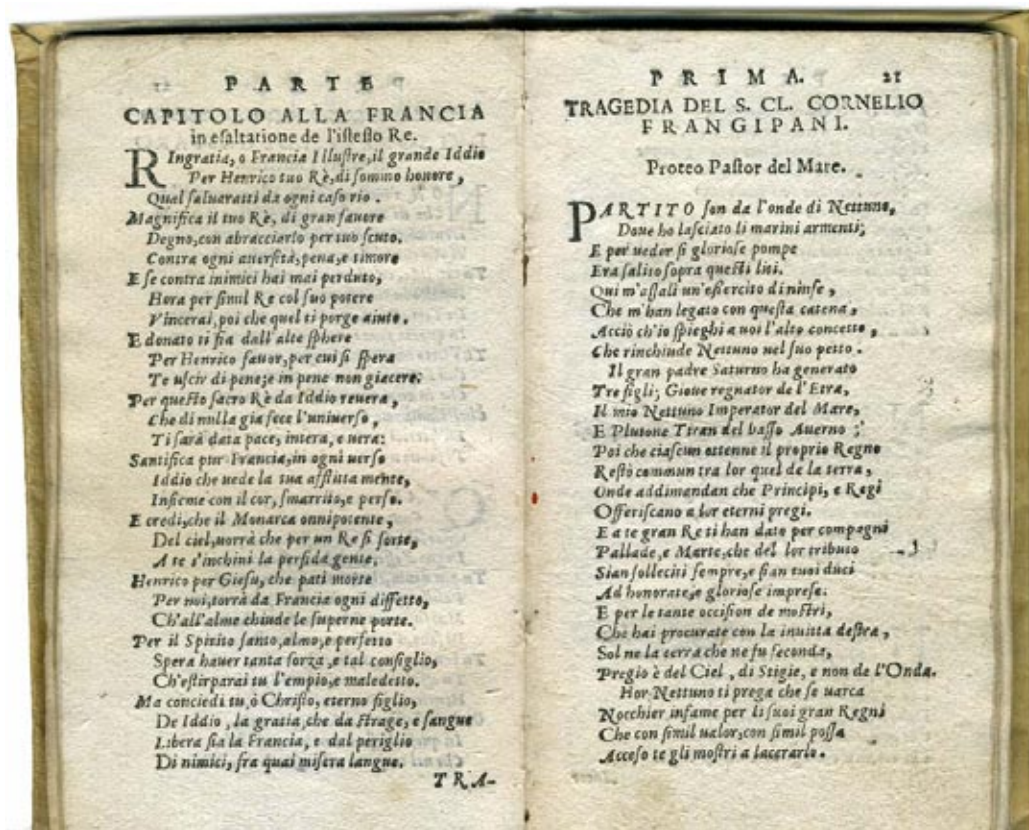 PARTE
CAPITOLO ALLA FRANCIA
in esaltatione de l'istesso Re.
RIngratia, o Francia Illustre, il grande Iddio
Per Henrico tuo Rè, di sommo honore,
Qual saluaratti da ogni caso rio.
Magnifica il tuo Rè, di gran fauore
Degno, con abracciarlo per tuo scuto.
Contra ogni auersità, pena, e timore
E se contra inimici hai mai perduto,
Hora per simil Re col suo potere
Vincerai, poi che quel ti porge aiuto.
E donato ti sia dall'alte sphere
Per Henrico fauor, per cui si spera
Te uscir di pene; e in pena non giacere:
Per questo sacro Rè da Iddio reuera,
Che di nulla gia fece l'uniuerso,
Ti sarà data pace, intera, e uera:
Santifica pur Francia, in ogni uerso
Iddio che uede la tua afflitta mente,
Insieme con il cor, smarrito, e perso.
E credi, che il Monarca onnipotente,
Del ciel, uorrà che per un Re si forte,
A te s'inchini la perfida gente.
Henrico per Giesu, che patì morte
Per noi, torrà da Francia ogni diffetto,
Ch'all'alme chiude le superne porte.
Per il Spirito santo, almo, e perfetto
Spera hauer tanta forza, e tal consiglio,
Ch'estirparai tu l'empio, e maledetto.
Ma conciedi tu, ò Christo, eterno figlio,
De Iddio, la gratia, che da strage, e sangue
Libera sia la Francia, e dal periglio
Di nimici, fra quai misera langue.
TRA-
PRIMA. 21
TRAGEDIA DEL S. CL. CORNELIO
FRANGIPANI.
Proteo Pastor del Mare.
PARTITO son da l'onde di Nettuno,
Doue ho lasciato li marini armenti;
E per ueder si gloriose pompe
Era salito sopra questi liti.
Qui m'assali un'essercito di ninfe,
Che m'han legato con questa catena,
Acciò ch'io spieghi a uoi l'alto concetto,
Che rinchiude Nettuno nel suo petto.
Il gran padre Saturno ha generato
Tre figli; Gioue regnator de l'Etra,
Il mio Nettuno Imperator del Mare,
E Plutone Tiran del basso Auerno;
Poi che ciascun ottenne il proprio Regno
Restò commun tra lor quel de la terra,
Onde addimandan che Principi, e Regi
Offeriscano a lor eterni pregi.
E a te gran Re ti han dato per compagni
Pallade, e Marte, che del lor tributo
Sian solleciti sempre, e sian tuoi duci
Ad honorate, e gloriose imprese:
E per le tante occision de mostri,
Che hai procurate con la inuitta destra,
Sol ne la terra che ne fu feconda,
Pregio è del Ciel, di Stigie, e non de l'Onda.
Hor Nettuno ti prega che se uarca
Nocchier infame per li suoi gran Regni
Che con simil ualor, con simil possa
Acceso te gli mostri a lacerarlo.